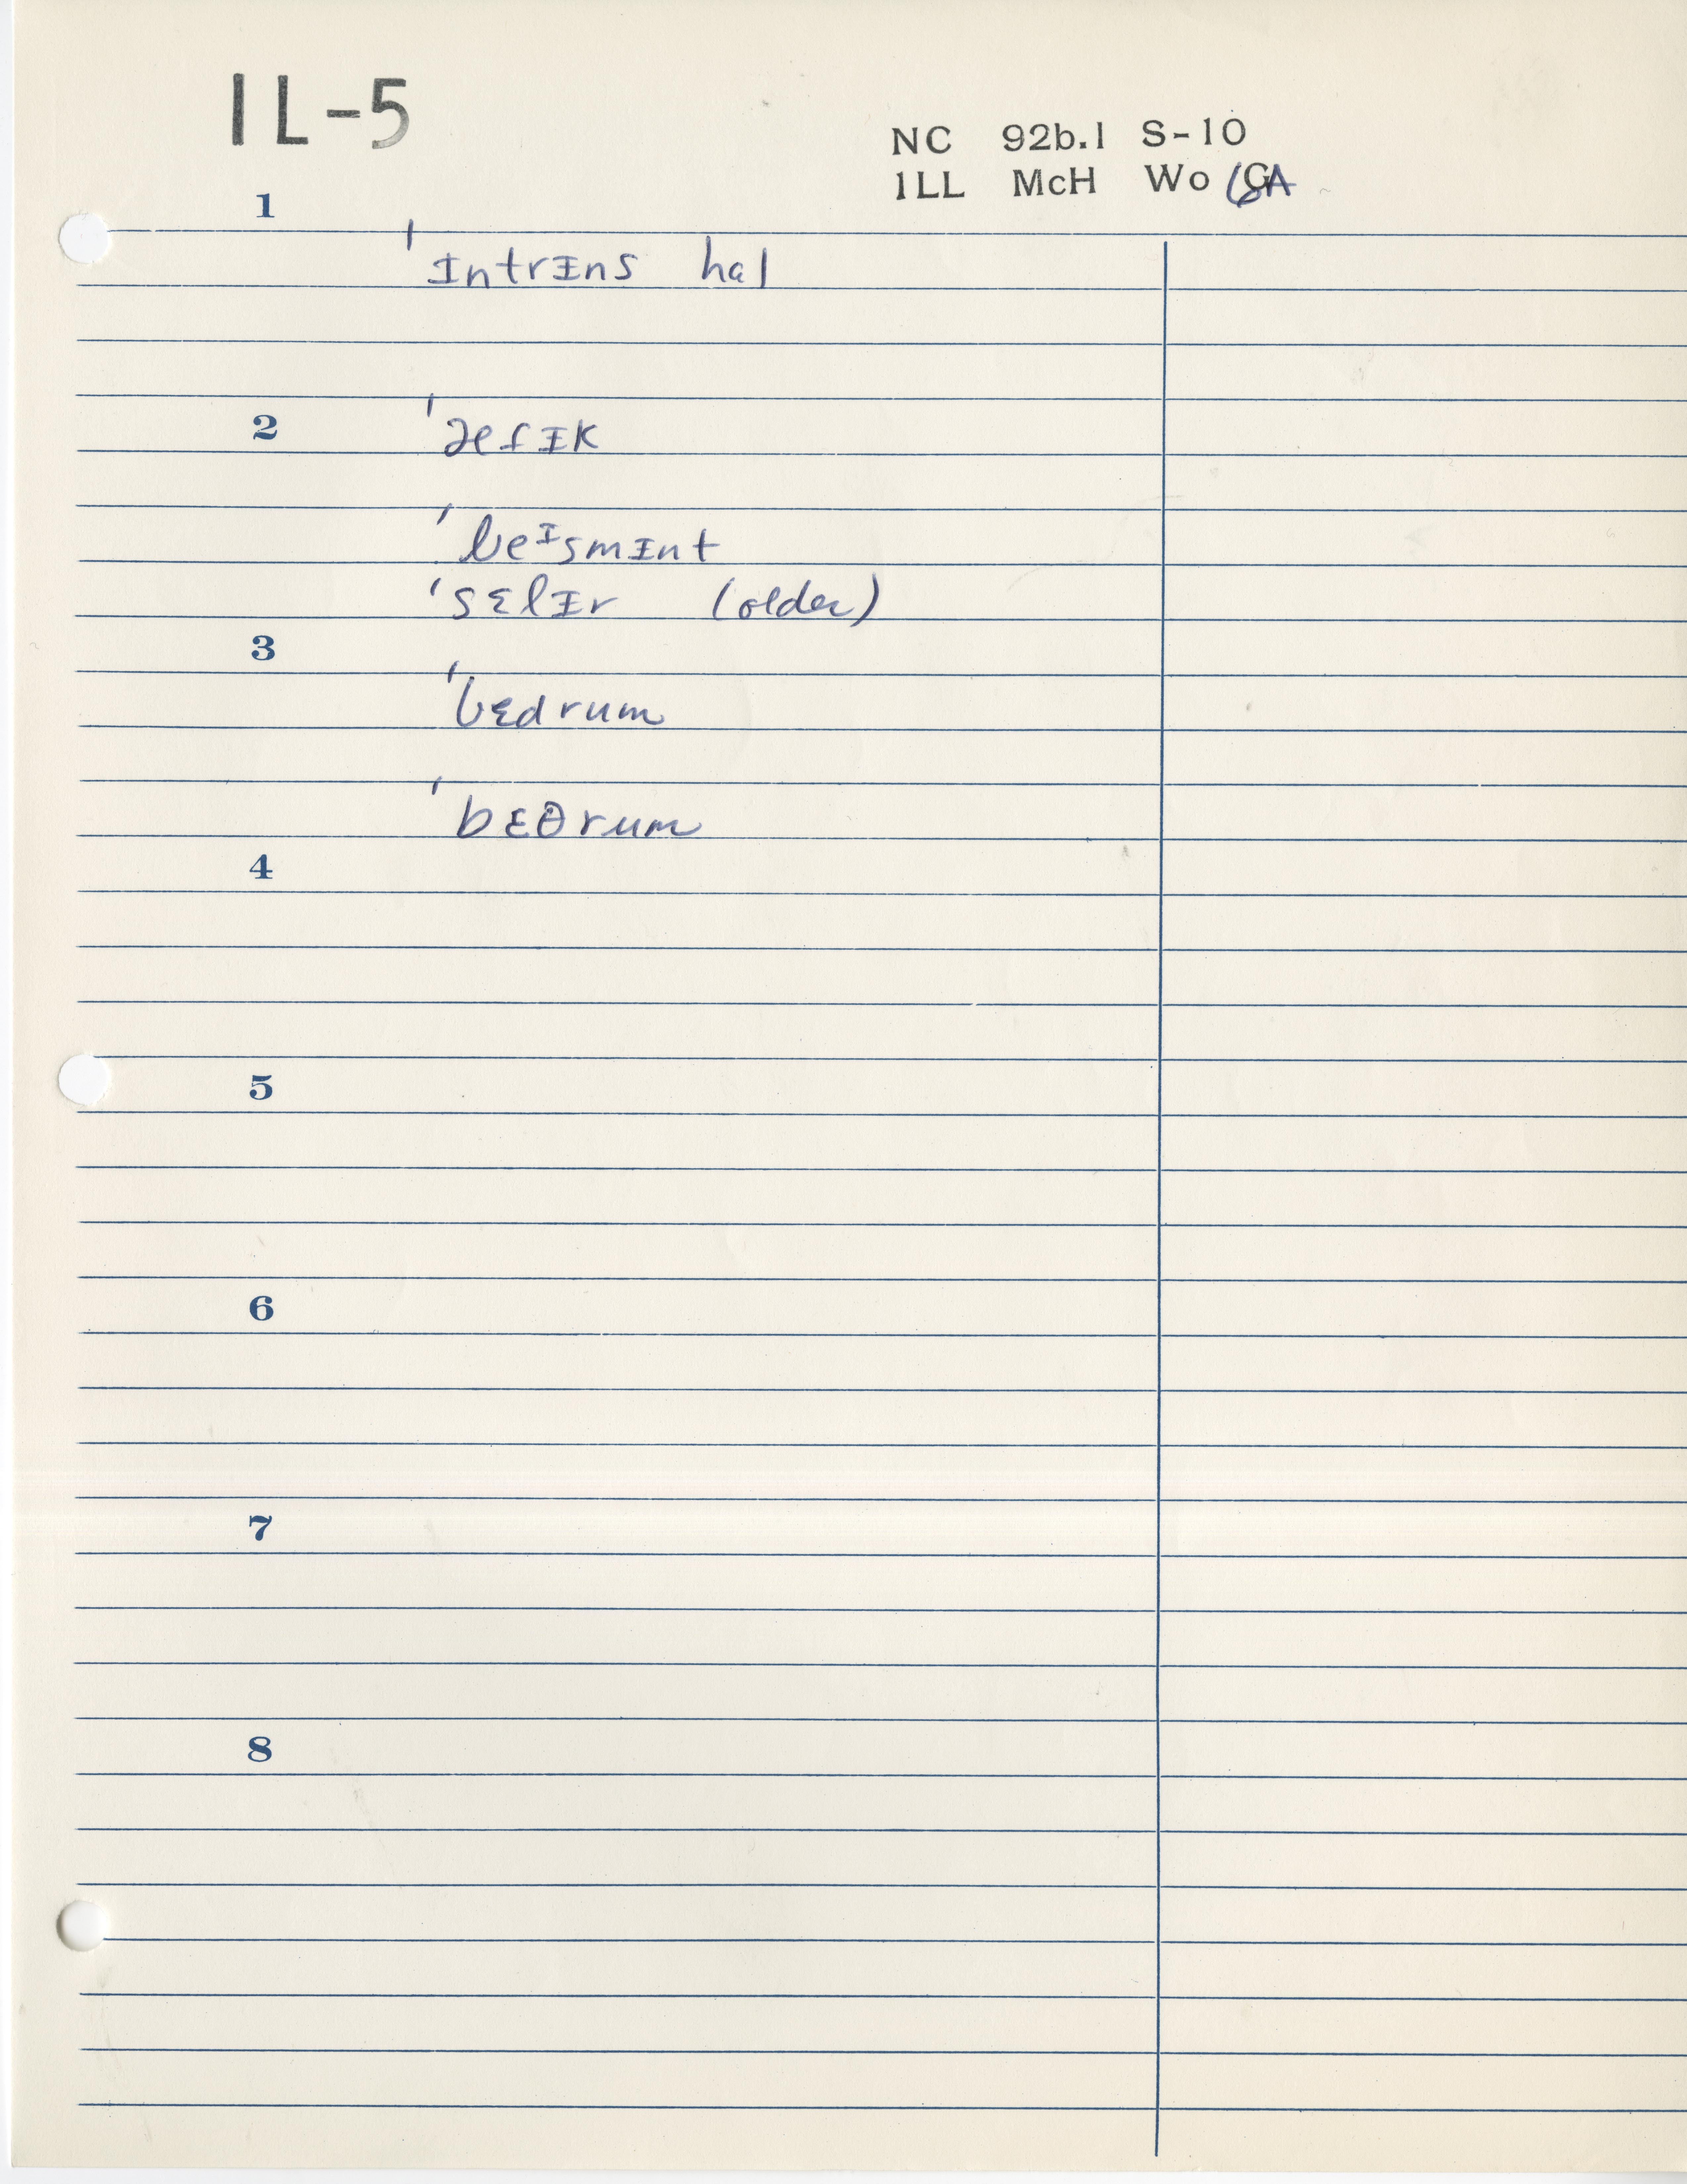 IL-5
NC 92b.1 S-10
ILL McH Wo GA
1
ˈɪntrɪns hal
2
ˈæfɪk
ˈbeᶦsmɪnt
ˈsɛlɪr (older)
3
ˈbɛdrum
ˈbɛθrum
4
5
6
7
8